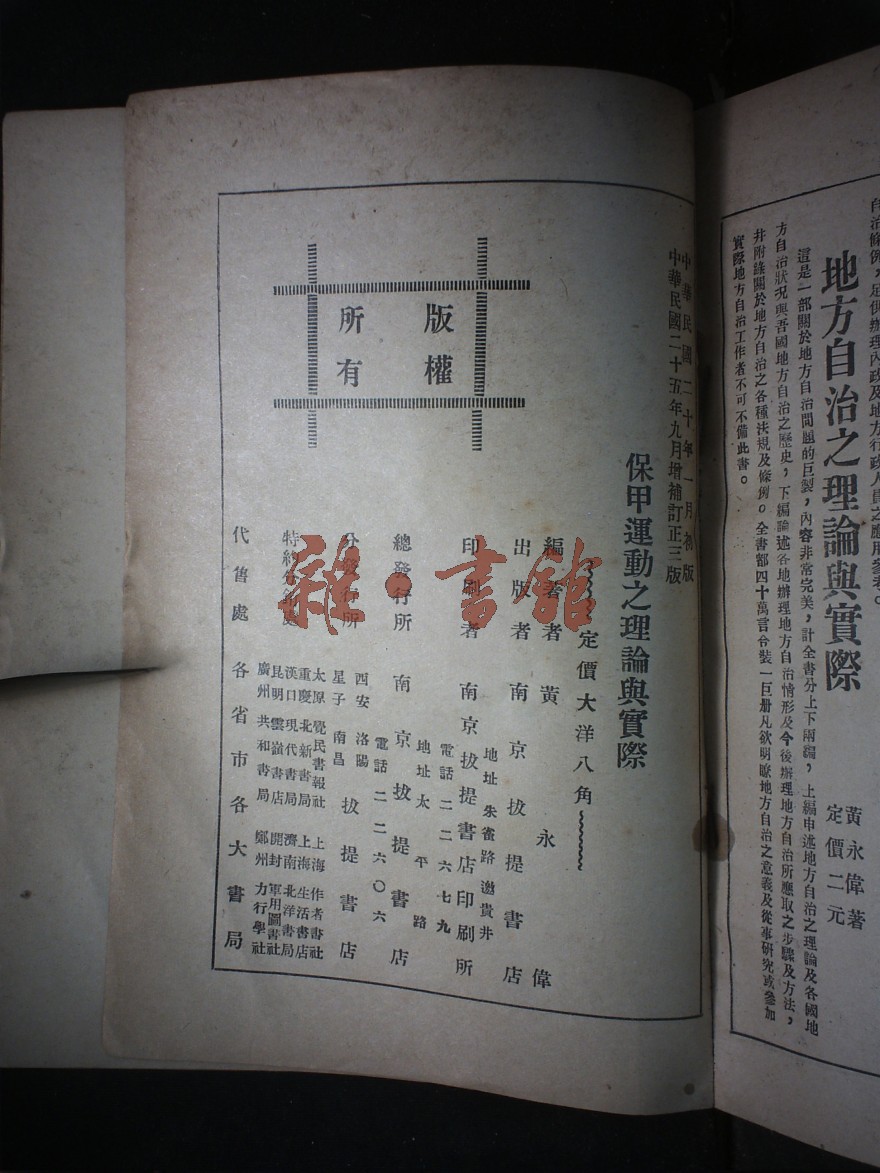 自治條例，足供辦理內政及地方行政人員之應用參考。
地方自治之理論與實際
黃永偉著
定價二元
這是一部關於地方自治問題的巨製，內容非常完美，計全書分上下兩編，上編申述地方自治之理論及各國地
方自治狀況與吾國地方自治之歷史，下編論述各地辦理地方自治情形及今後辦理地方自治所應取之步驟及方法，
并附錄關於地方自治之各種法規及條例。全書都四十萬言合裝一巨册凡欲明瞭地方自治之意義及從事研究或參加
實際地方自治工作者不可不備此書。
中華民國二十年一月初版
中華民國二十五年九月增補訂正三版
保甲運動之理論與實際
定價大洋八角
編著者 黃永偉
出版者 南京拔提書店
地址 朱雀路邀貴井
印刷者 南京拔提書店印刷所
電話二二六七九
地址太平路
總發行所 南京拔提書店
電話二二六〇六
分發行所
西安 洛陽
星子 南昌
拔提書店
特約分銷處
太原 覺民書報社 上海 作者書社
重慶 北新書局 上海 生活書店
漢口 現代書局 濟南 北洋書局
昆明 雲嶺書店 開封 軍用圖書社
廣州 共和書局 鄭州 力行學社
代售處 各省市各大書局
版權
所有
雜·書館